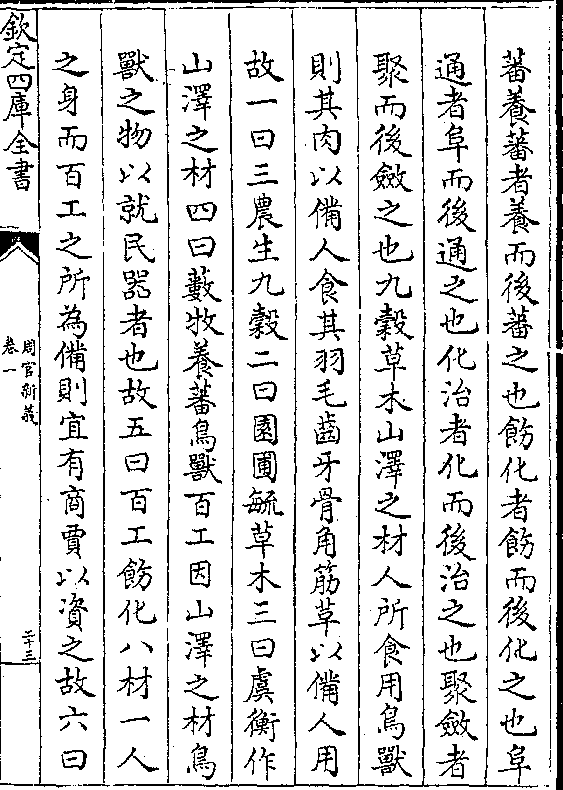 蕃養蕃者養而後蕃之也飭化者飭而後化之也阜
通者阜而後通之也化治者化而後治之也聚斂者
聚而後斂之也九穀草木山澤之材人所食用鳥獸
則其肉以備人食其羽毛齒牙骨角筋草以備人用
故一曰三農生九穀二曰園圃毓草木三曰虞衡作
山澤之材四曰藪牧養蕃鳥獸百工因山澤之材鳥
獸之物以就民器者也故五曰百工飭化八材一人
之身而百工之所為備則宜有商賈以資之故六曰
欽定四庫全書
周官新義
卷一
二十三